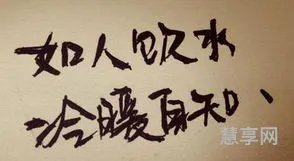 如人飲水
冷暖自知、
慧享网